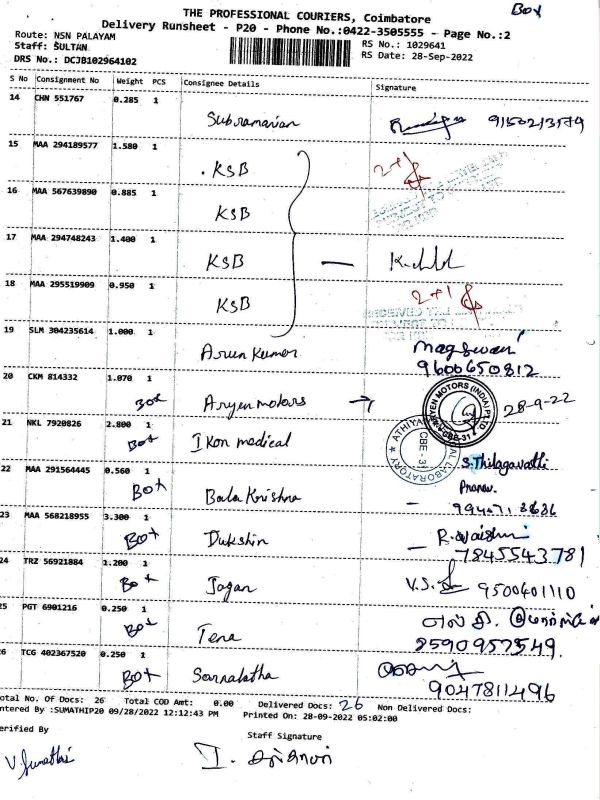 Box
THE PROFESSIONAL COURIERS, Coimbatore
Delivery Runsheet - P20 - Phone No.:0422-3505555 - Page No.:2
Route: NSN PALAYAM
Staff: SULTAN
DRS No.: DCJB102964102
RS No.: 1029641
RS Date: 28-Sep-2022
S No Consignment No Weight PCS Consignee Details Signature
14 CHN 551767 0.285 1 Subramanian
15 MAA 294189577 1.580 1 KSB 2+1
16 MAA 567639890 0.885 1 KSB
17 MAA 294748243 1.400 1 KSB
18 MAA 295519909 0.950 1 KSB 2+1
RECEIVED
19 SLM 304235614 1.000 1 Arun Kumar
9600650812
20 CKM 814332 1.070 1 Box Aryen motors → ARYEN MOTORS (INDIA) PVT. LTD. CBE-31 28-9-22
21 NKL 7920826 2.800 1 Box Ikon medical LABORATORY CBE - 31
S.Thilagavathi
22 MAA 291564445 0.560 1 Box Bala Krishna Pranav.
23 MAA 568218955 3.300 1 Box Dukshin
7845543781
24 TRZ 56921884 1.200 1 Box Jagan V.S. 9500401110
25 PGT 6901216 0.250 1 Box Tena
8590957549.
26 TCG 402367520 0.250 1 Box Sarnalatha
9047811496
Total No. Of Docs: 26 Total COD Amt: 0.00 Delivered Docs: 26 Non Delivered Docs:
Entered By :SUMATHIP20 09/28/2022 12:12:43 PM Printed On: 28-09-2022 05:02:00
Verified By Staff Signature
V. Sumathi